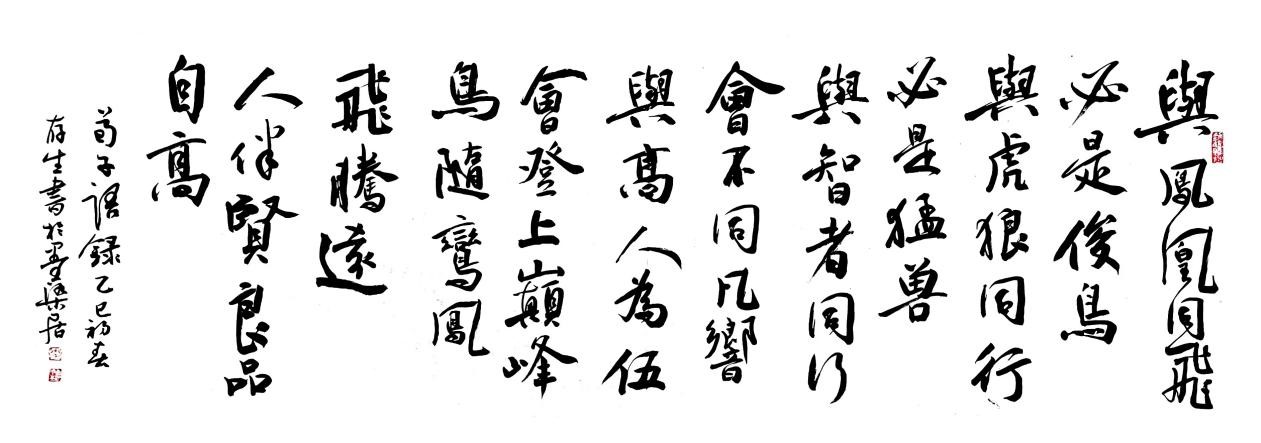 與鳳凰同飛
必是俊鳥
與虎狼同行
必是猛兽
與智者同行
會不同凡響
與高人為伍
會登上巔峰
鳥隨鸞鳳
飛騰遠
人伴賢良品
自高
荀子語錄乙巳初春
存生書於墨樂居